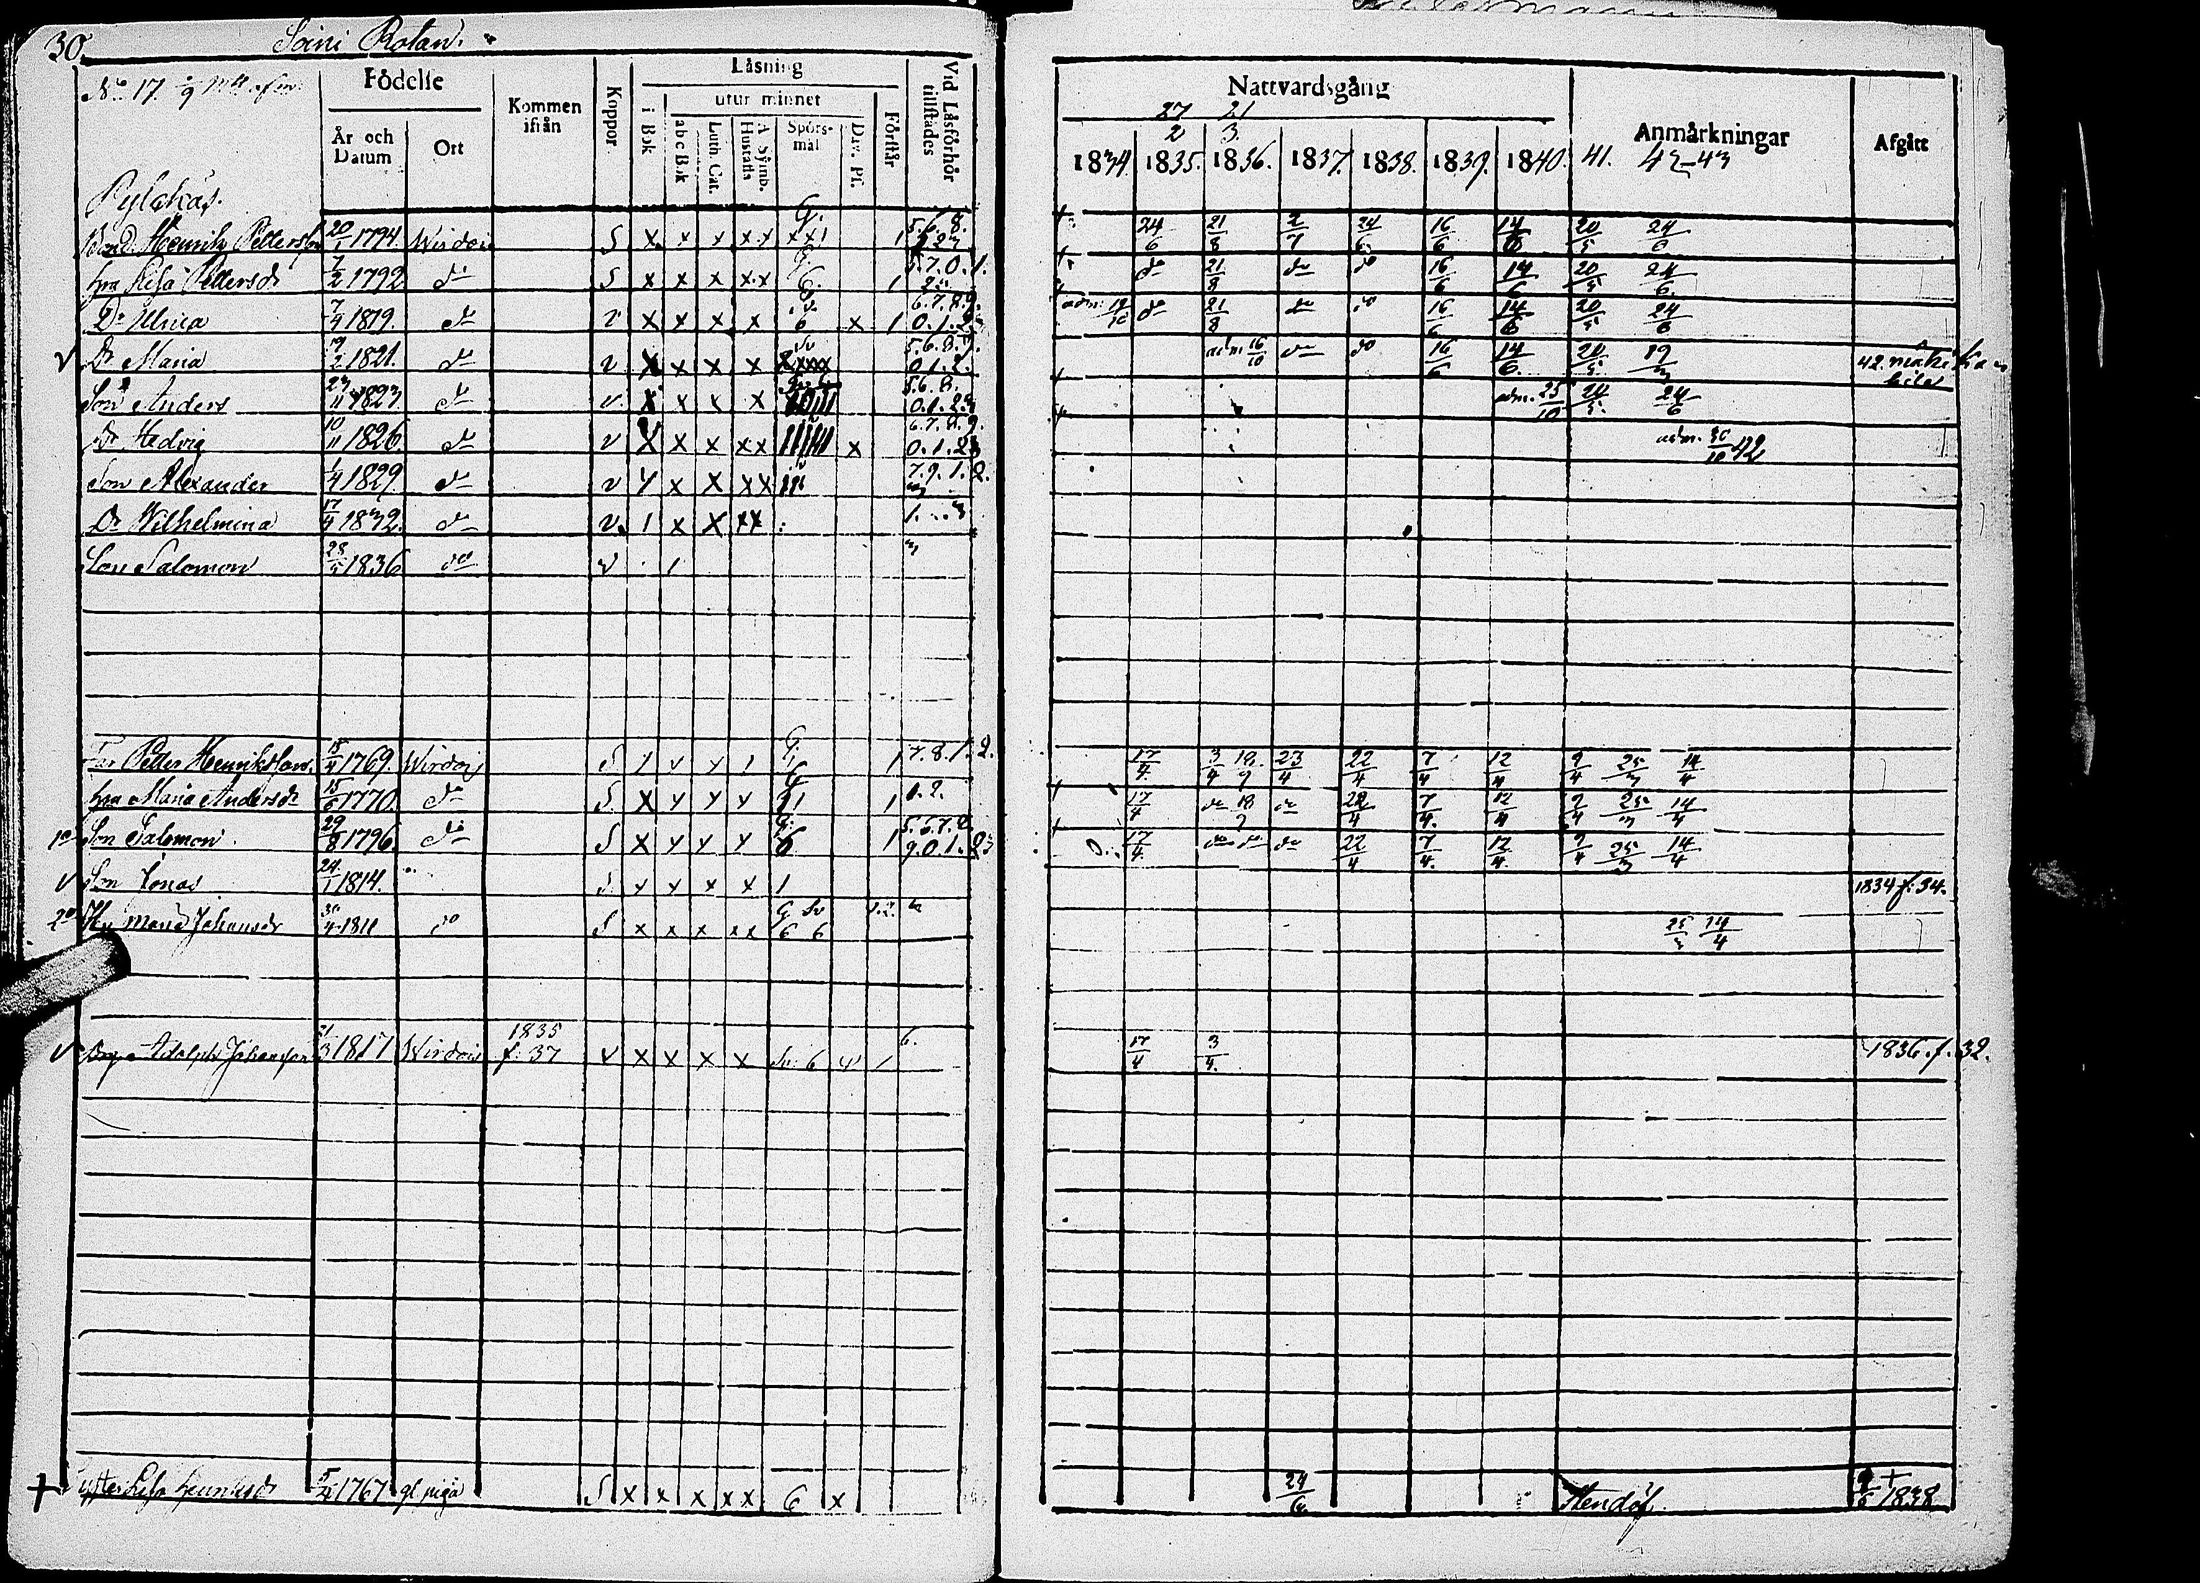 30. Soini Rotan.
No 17. Födelse Kommen ifrån Koppor. Läsning i Bok utur minnet abc Bok Luth. Cat. A. Symb. Hustafla Spörsmål Div. Ps. Förstår Vid Läsförhör tillstädes
År och Datum Ort
Nattvardsgång Anmärkningar Afgått
27 21
2 3
1834. 1835. 1836. 1837. 1838. 1839. 1840. 41. 42-43
Bond. Henrik Pettersson 20/1 1794. Wirdois S x x x x x x x 1 1 5.6.8. 24/6 21/8 2/7 24/6 16/6 14/6 20/5 24/6
hru Lisa Pettersdr 7/2 1792 do S x x x x x 6. 1 5.7.0.1. 2 do 21/8 do do 16/6 14/6 20/5 24/6
Dr Ulrica 7/4 1819. do v x x x x 6 x 1 6.7.8.9. 0.1.2 adm: do 21/8 do do 16/6 14/6 20/5 24/6
v Dr Maria 19/2 1821. do v x x x x 0.1.2. adm 16/10 do do 16/6 14/6 20/5 42.
Son Anders 23/11 1823. do v. x x x x 5.6.8. 0.1.2.3 adm. 25/10 24/6
Dr Hedvig 10/11 1826. do v x x x x x x 6.7.8.9. 0.1.2.3 adm. 30/10 42
Son Alexander 1/4 1829. do v x x x x 7.9.1.2.
Dr Wilhelmina 17/4 1832. do v. 1 x x x x 1. 3
Son Salomon 28/5 1836 do v 1 3
Far Petter Henriksson. 15/4 1769. Wirdois S G. 1 7.8.1.2. 17/4 3/4 18/9 23/4 22/4 7/4 12/4 9/4 25/3 14/4
hru Maria Andersdr 15/6 1770. do S. x 1 1.2. 17/4 do 18/9 do 22/4 7/4 12/4 9/4 25/3 14/4
1o Son Salomon. 29/8 1796. do S x 6 1 5.6.7.8. 9.0.1.2.3 17/4 do do do 22/4 7/4. 12/4. 9/4 25/3 14/4
v Son Jonas 24/1 1814. S x x x x 1 1834 f. 34.
2o Hu Maria Johansdr 30/4 1811 do S x x x x x 6 6 25/3 14/4
v Adolph Johansson 21/3 1817 Wirdois 1835 f. 37 v x x x x 6 1 6. 17/4 3/4. 1836. f. 32.
+ Lisa Henricsdr 5/4 1767 gl. piga S x x x x x 6 x 24/6 1838